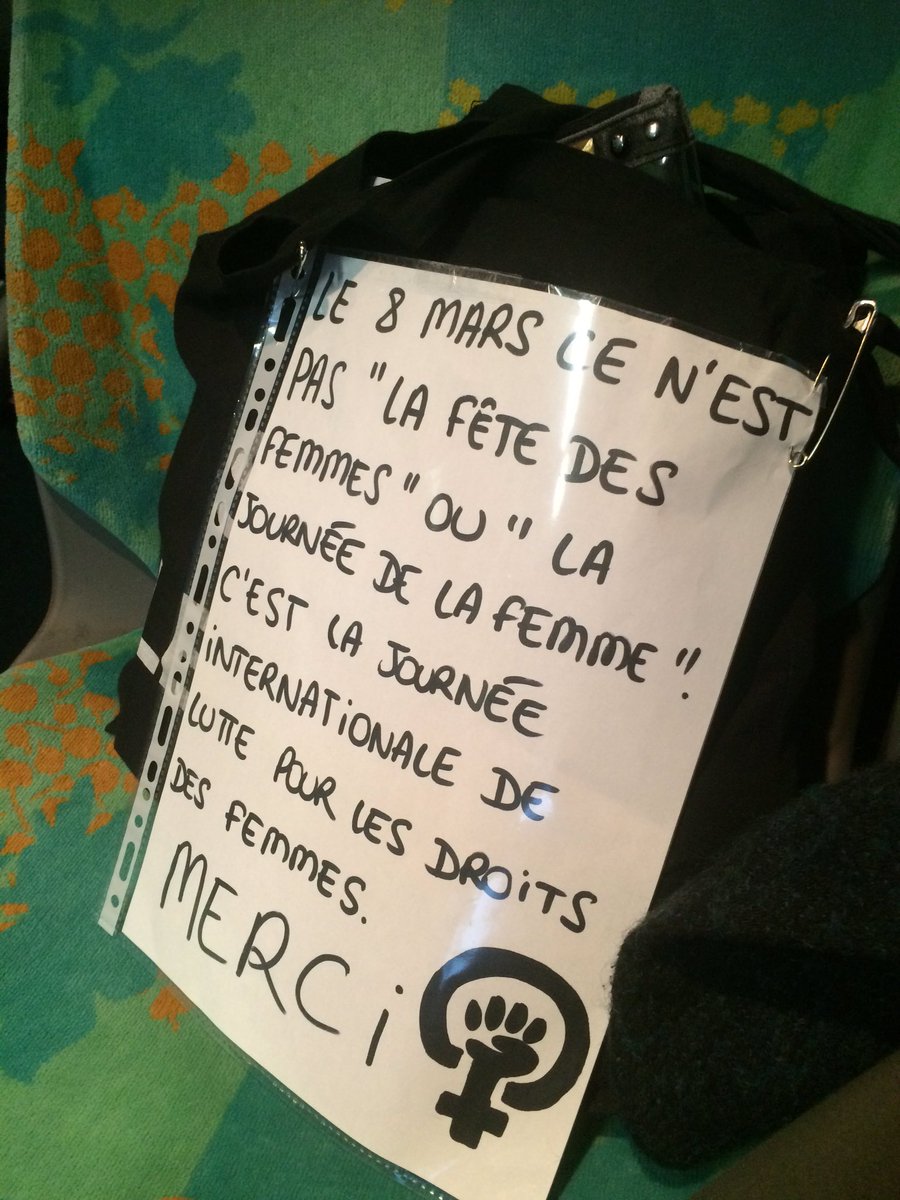 LE 8 MARS CE N'EST
PAS "LA FÊTE DES
FEMMES" OU "LA
JOURNÉE DE LA FEMME"!
C'EST LA JOURNÉE
iNTERNATiONALE DE
LUTTE POUR LES DROiTS
DES FEMMES.
MERCi